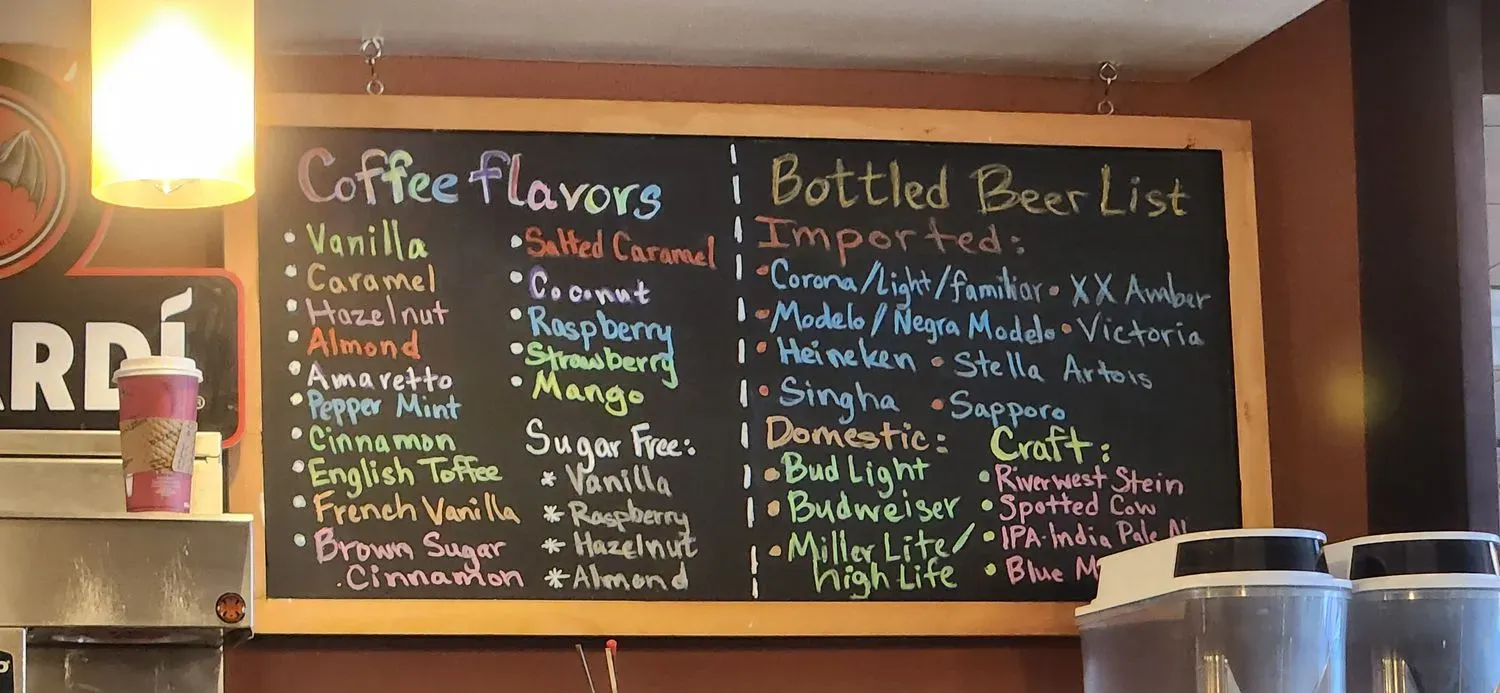 Coffee flavors
• Vanilla
• Caramel
• Hazelnut
• Almond
• Amaretto
• Pepper Mint
• Cinnamon
• English Toffee
• French Vanilla
• Brown Sugar
. Cinnamon
• Salted Caramel
• Coconut
• Raspberry
• Strawberry
• Mango
Sugar Free:
* Vanilla
* Raspberry
* Hazelnut
* Almond
Bottled Beer List
Imported:
• Corona/Light/familiar • XX Amber
• Modelo/Negra Modelo • Victoria
• Heineken • Stella Artois
• Singha • Sapporo
Domestic:
• Bud Light
• Budweiser
• Miller Lite/
high Life
Craft:
• Riverwest Stein
• Spotted Cow
• IPA-India Pale
• Blue
ARDÍ